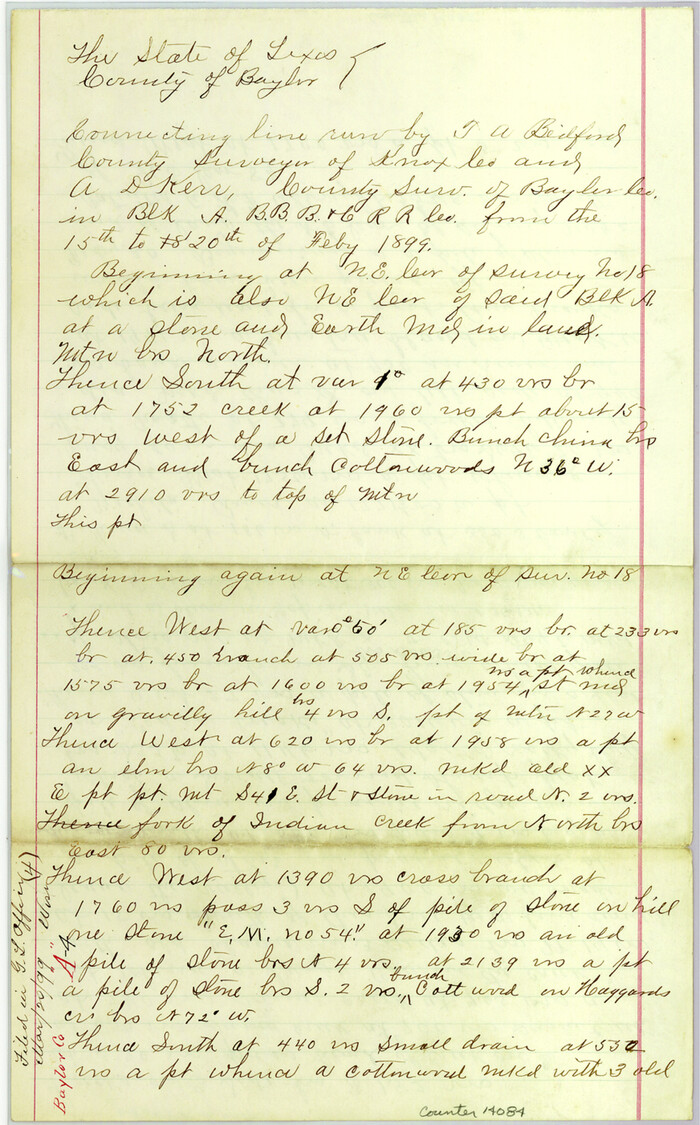 The State of Texas
County of Baylor
Connecting line run by T A Bedford
County Surveyor of Knox Co and
A D Kerr, County Surv. of Baylor Co.
in Blk A. B.B.B. & C R R Co. from the
15th to 18 20th of Feby 1899.
Beginning at N.E. Cor of survey No 18
which is also NE Cor of said Blk A.
at a stone and Earth Md in
Mtn brs North.
Thence South at var 9° at 430 vrs br
at 1752 creek at 1960 vrs pt about 15
vrs west of a set stone. Bunch china brs
East and bunch Cottonwoods N 36° W.
at 2910 vrs to top of Mtn
This pt
Beginning again at NE Cor of Sur. No 18
Thence West at var 50' at 185 vrs br. at 233 vrs
br at. 450 branch at 505 vrs wide br at
1575 vrs br at 1600 vrs br at 1954 vrs a pt whence st md
on gravilly hill brs 4 vrs S. pt of Mtn N 27 W
Thence West at 620 vrs br at 1958 vrs a pt
an elm brs N 8° W 64 vrs. mkd old XX
E pt pt. mt S 41 E. St & Stone in road N. 2 vrs.
Thence fork of Indian Creek from North brs
East 80 vrs.
Thence West at 1390 vrs cross branch at
1760 vrs pass 3 vrs S of pile of stone on hill
one stone "E. M. no 54." at 1930 vrs an old
pile of stone brs N 4 vrs at 2139 vrs a pt
a pile of stone brs S. 2 vrs. bunch Cottwood on Haggards
cr brs N 72° W.
Thence South at 440 vrs small drain at 532
vrs a pt whence a cottonwood mkd with 3 old
Filed in G. L. Office (4)
Mar/25/99
Baylor Co "A" 4
Counter 14084